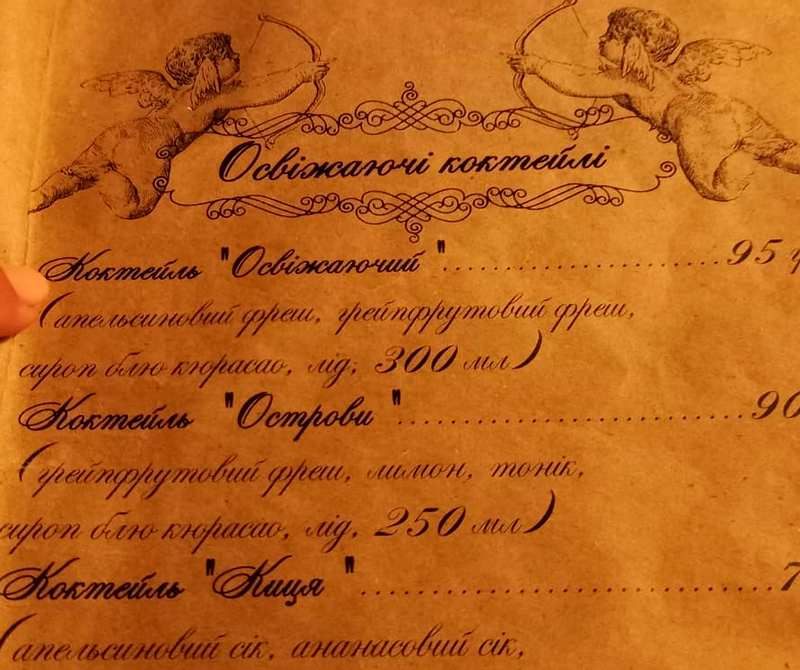 Освіжаючі коктейлі
Коктейль "Освіжаючий "........................95
(апельсиновий фреш, грейпфрутовий фреш,
сироп блю кюрасао, лід, 300 мл)
Коктейль "Острови "..............................90
(грейпфрутовий фреш, лимон, тонік,
сироп блю кюрасао, лід, 250 мл)
Коктейль "Киця "....................................7
(апельсиновий сік, ананасовий сік,